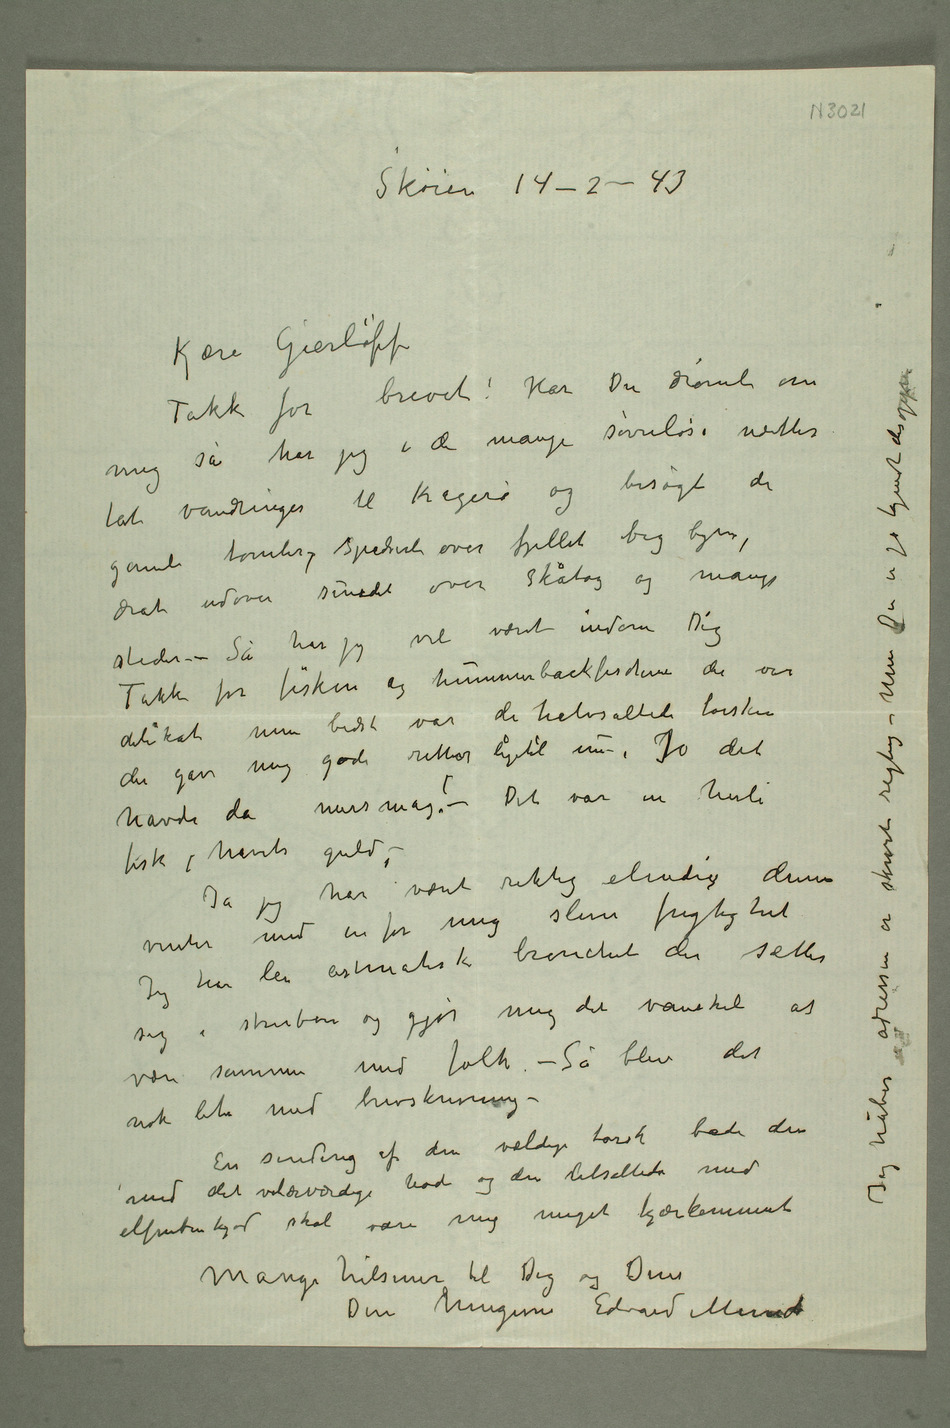 N3021
Skøien 14–2–43
Kjære Gierløff
Takk for brevet! Har Du drømt om
mig så har jeg i de mange søvnløse nætter
tat vandringer til Kragerø og besøgt de
gamle tomter, spadsert over fjellet bag byen,
dratt udover sundet over Skåtøy og mange
steder – Så har jeg vel været indom Dig
Takk for fisken og hummerbackfischene de var
delikate men bedst var de halvsaltede torsker
der gav mig gode retter ligetil nu. Jo det
havde da mersmag! – Det var en herli
fisk, havets guld, –
Ja jeg har været riktig elendig denne
vinter med en for mig slem frygtighet
Jeg har let astmatisk bronchit der setter
sig i struben og gjør mig det vanskeli at
være sammen med folk. – Så blev det
nok lite med brevskrivning –
En sending af den vældige torsk både den
med det velærværdige hode og den letsaltede med
elfenbenkjød skal være mig meget kjærkomment
Mange hilsener til Dig og Dine
Din hengivne Edvard Munch
Jeg håber adressen er skrevet regtig – men Du er jo kjendt deroppe